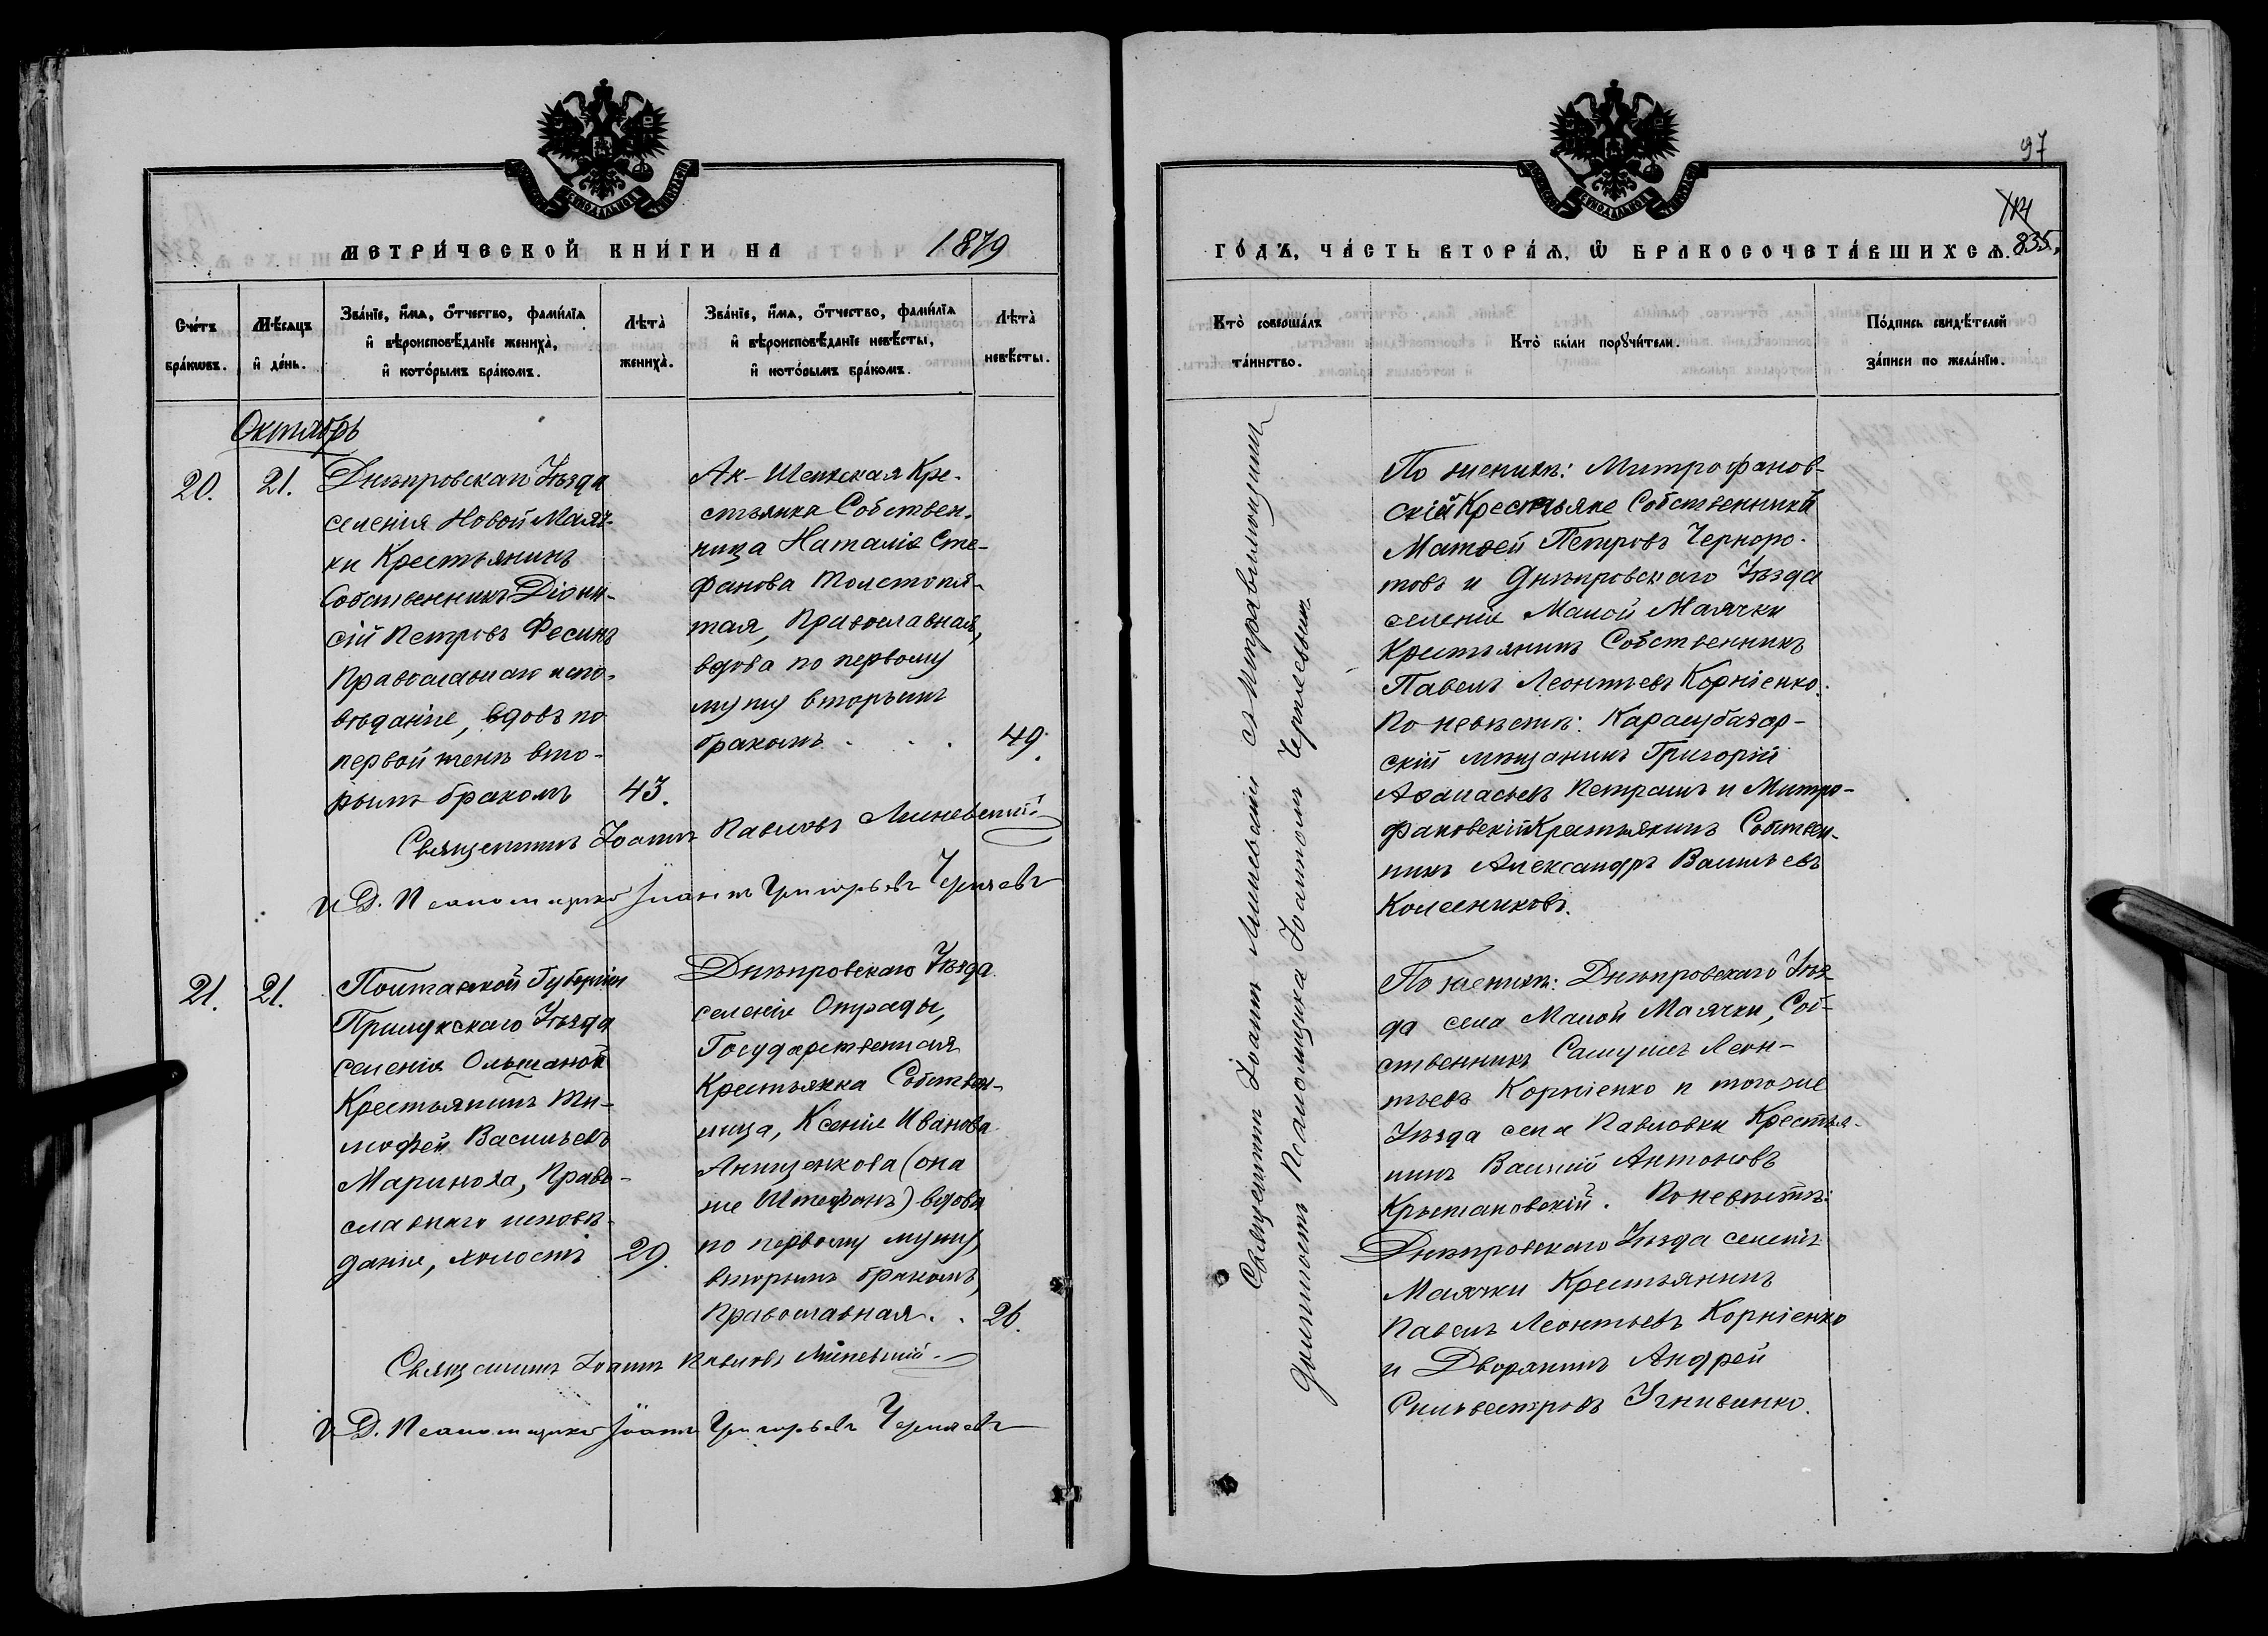 МЕТРИ́ЧЕСКОЙ КНИ́ГИ НА 1879
Сче́тъ бра́кѡвъ.
Мѣ́сяцъ и҆ де́нь.
Зва́нїе, и҆́мя, ѻ҆́тчество, фами́лїя
и҆ вѣроисповѣ́данїе жениха̀,
и҆ кото́рымъ бра́комъ.
Лѣта̀ жениха̀.
Зва́нїе, и҆́мя, ѻ҆́тчество, фами́лїя
и҆ вѣроисповѣ́данїе невѣ́сты,
и҆ кото́рымъ бра́комъ.
Лѣта̀ невѣ́сты.
Октябрь
20. 21.
Днѣпровскаго Уѣзда
селенія Новой Маяч-
ки Крестьянинъ
Собственникъ Діони-
сій Петровъ Фесинъ
Православнаго испо-
вѣданіе, вдовъ по
первой женѣ вто-
рымъ бракомъ 43.
Ак-Шеихская Кре-
стьянка Собствен-
ница Наталія Сте-
фанова Толстопя-
тая, Православная,
вдова по первому
мужу вторымъ
бракомъ . . . 49.
Священникъ Іоаннъ Павловъ Линевскій
И. Д. Псаломщика Іоаннъ Григорьевъ Черняевъ
21. 21.
Полтавской Губерніи
Прилукскаго Уѣзда
селенія Ольшаной
Крестьянинъ Ти-
мофей Васильевъ
Мариноха, Право-
славнаго исповѣ-
данія, холостъ 29.
Днѣпровскаго Уѣзда
селенія Отрады,
Государственная
Крестьянка Собствен-
ница, Ксенія Иванова
Анищенкова (она
же Штефанъ) вдова
по первому мужу,
вторымъ бракомъ,
Православная. . 26.
Священникъ Іоаннъ Павловъ Линевскій
И. Д. Псаломщика Іоаннъ Григорьевъ Черняевъ
97
835.
ГО́ДЪ, ЧА́СТЬ ВТОРА́Я, Ѡ҆ БРАКОСОЧЕТА́ВШИХСЯ.
Кто̀ соверша́лъ
та́инство.
Кто̀ бы́ли порꙋчи́тели.
По́дпись свидѣ́телей
за́писи по жела́нїю.
Священникъ Іоаннъ Линевскій съ исправляющимъ
должность Псаломщика Іоанномъ Черняевымъ
По женихѣ: Митрофанов-
скій Крестьяне Собственники
Матѳей Петровъ Черноро-
товъ и Днѣпровскаго Уѣзда
селенія Малой Маячки
Крестьянинъ Собственникъ
Павелъ Леонтьевъ Корніенко.
По невѣстѣ: Карасубазар-
скій мѣщанинъ Григорій
Аѳанасьевъ Петрашъ и Митро-
фановскій Крестьянинъ Собствен-
никъ Александръ Васильевъ
Колесниковъ.
По женихѣ: Днѣпровскаго Уѣз-
да села Малой Маячки, Соб-
ственникъ Самуилъ Леон-
тьевъ Корніенко и тогоже
Уѣзда села Павловки Крестья-
нинъ Василій Антоновъ
Крыжановскій. По невѣстѣ:
Днѣпровскаго Уѣзда селенія
Маячки Крестьянинъ
Павелъ Леонтьевъ Корніенко
и Дворянинъ Андрей
Сильвестровъ Угнивенко.